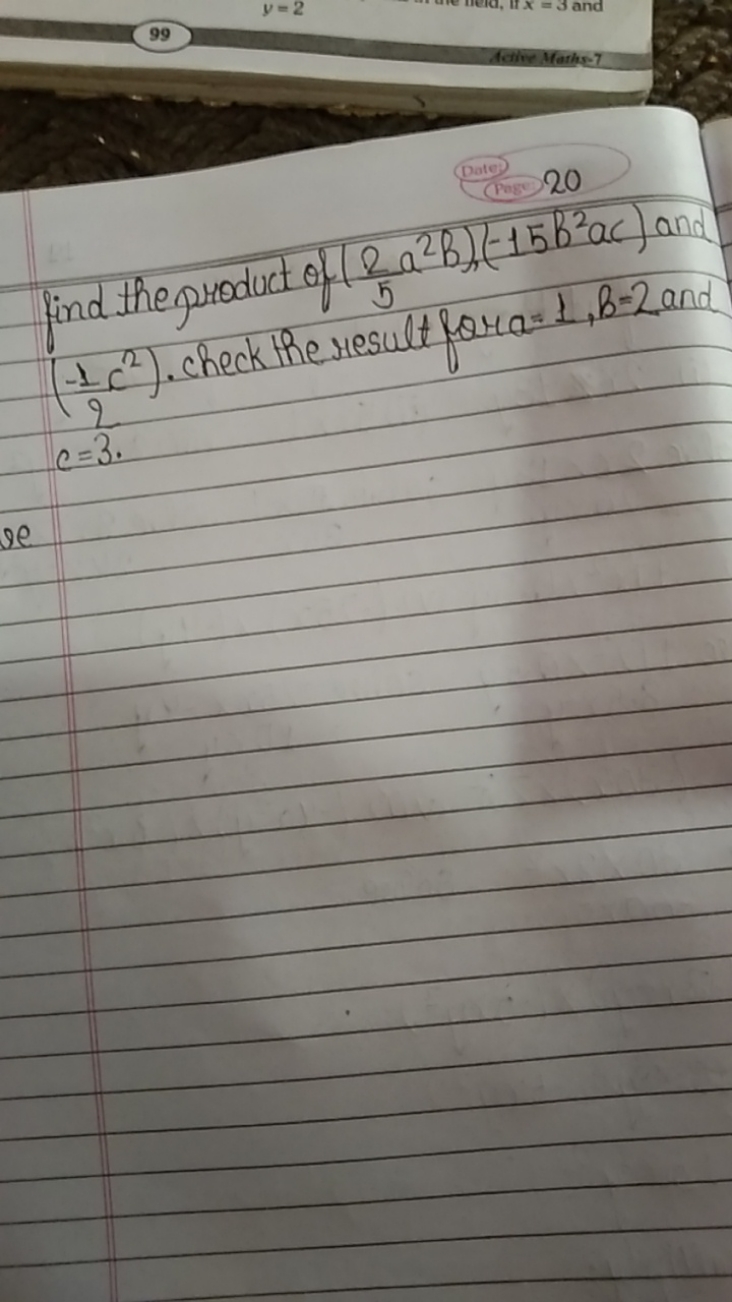 in the field, if x = 3 and
y = 2
99
Active Maths-7
Date:
Page: 20
find the product of (2/5 a²b), (-15b²ac) and
(-1/2 c²). check the result for a = 1, b = 2 and
c = 3.